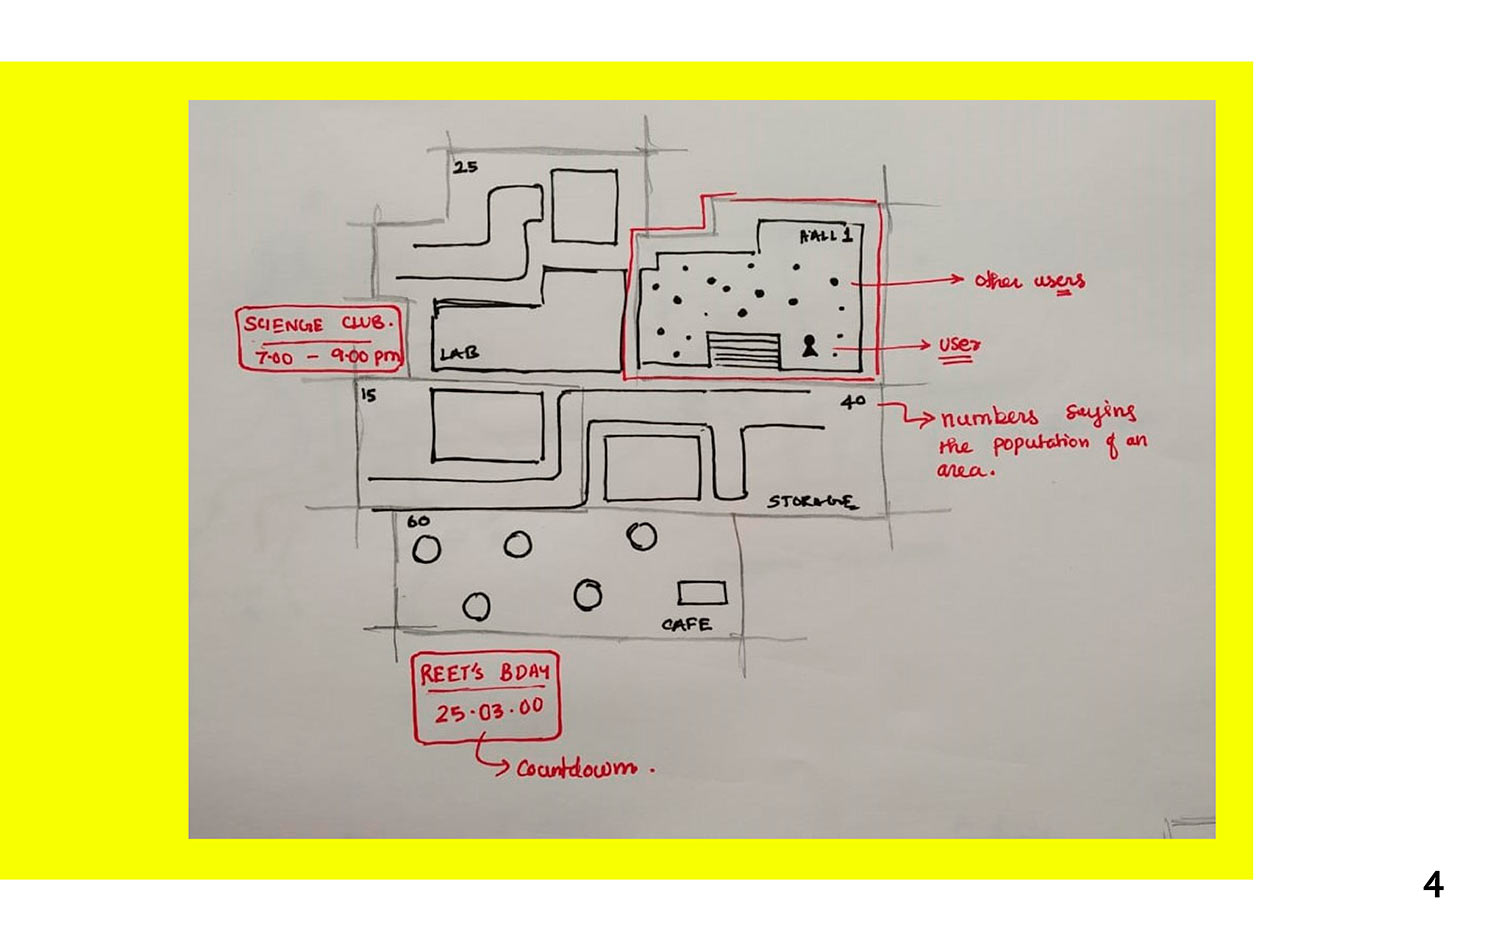 25
HALL 1
other users
SCIENCE CLUB.
7:00 - 9:00 pm
LAB
user
15
40
numbers saying
the population of an
area.
STORAGE
60
CAFE
REET'S BDAY
25.03.00
countdown.
4